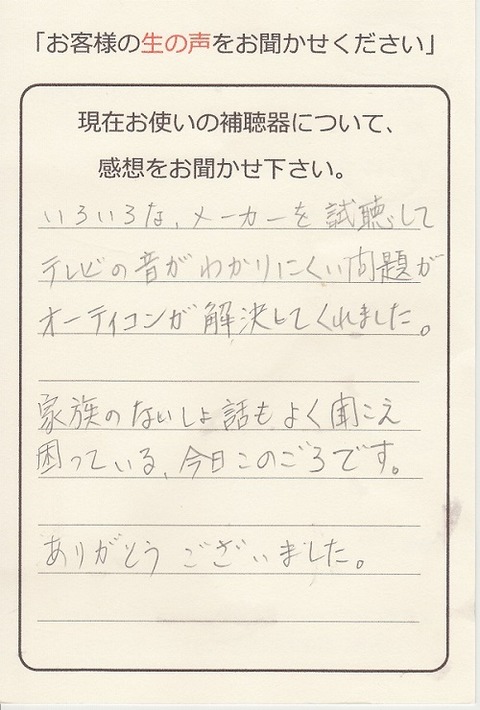 「お客様の生の声をお聞かせください」
現在お使いの補聴器について、
感想をお聞かせ下さい。
いろいろな、メーカーを試聴して
テレビの音がわかりにくい問題が
オーティコンが解決してくれました。
家族のないしょ話もよく聞こえ
困っている、今日このごろです。
ありがとうございました。